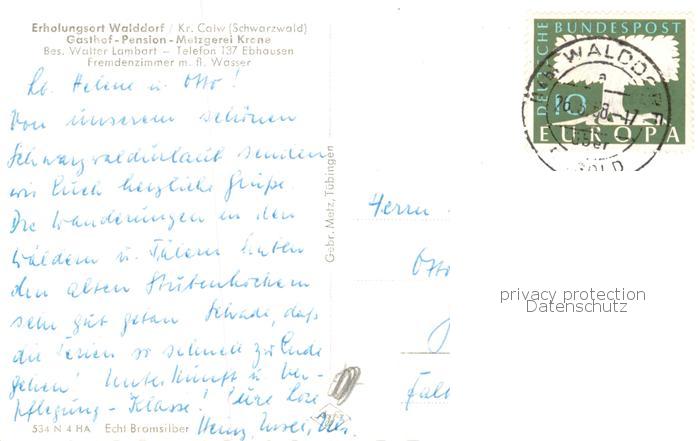 Erholungsort Walddorf / Kr. Calw (Schwarzwald)
Gasthof-Pension-Metzgerei Krone
Bes. Walter Lambart – Telefon 137 Ebhausen
Fremdenzimmer m. fl. Wasser
Lb. Helene u. Otto!
Von unserem schönen
Schwarzwaldurlaub senden
wir Euch herzliche Grüße.
Die Wanderungen in den
Wäldern u. Tälern haben
den alten Stubenhockern
sehr gut getan. Schade, daß
die Ferien so schnell zu Ende
gehen! Unterkunft u. Ver-
pflegung - Klasse! Eure
Heinz,
534 N 4 HA Echt Bromsilber
Gebr. Metz, Tübingen
Herrn
Otto
DEUTSCHE BUNDESPOST
10
EUROPA
WALDDORF
privacy protection
Datenschutz